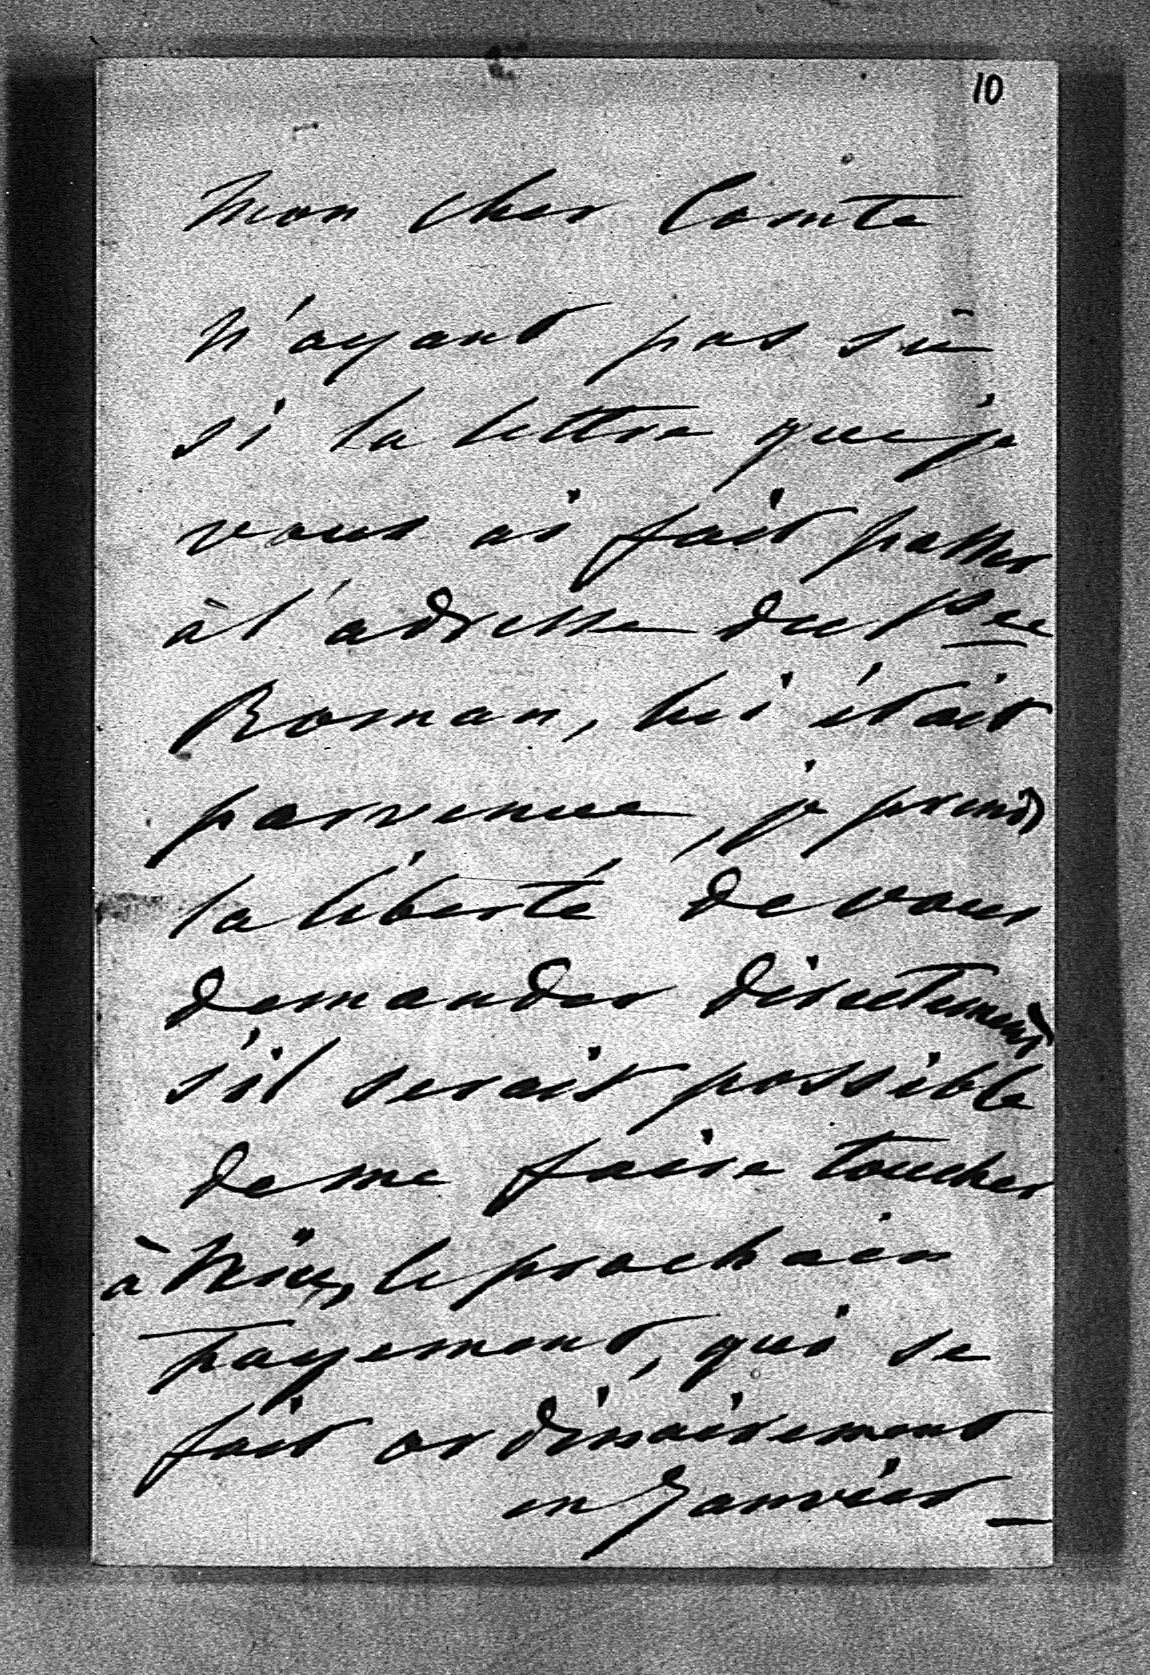 10
Mon cher Comte
N'ayant pas sû
si la lettre que je
vous ai fait passer
à l'adresse du Pce
Roman, lui était
parvenue, je prends
la liberté de vous
demander directement
s'il serait possible
de me faire toucher
à Nice, le prochain
payement, qui se
fait ordinairement
en Janvier —